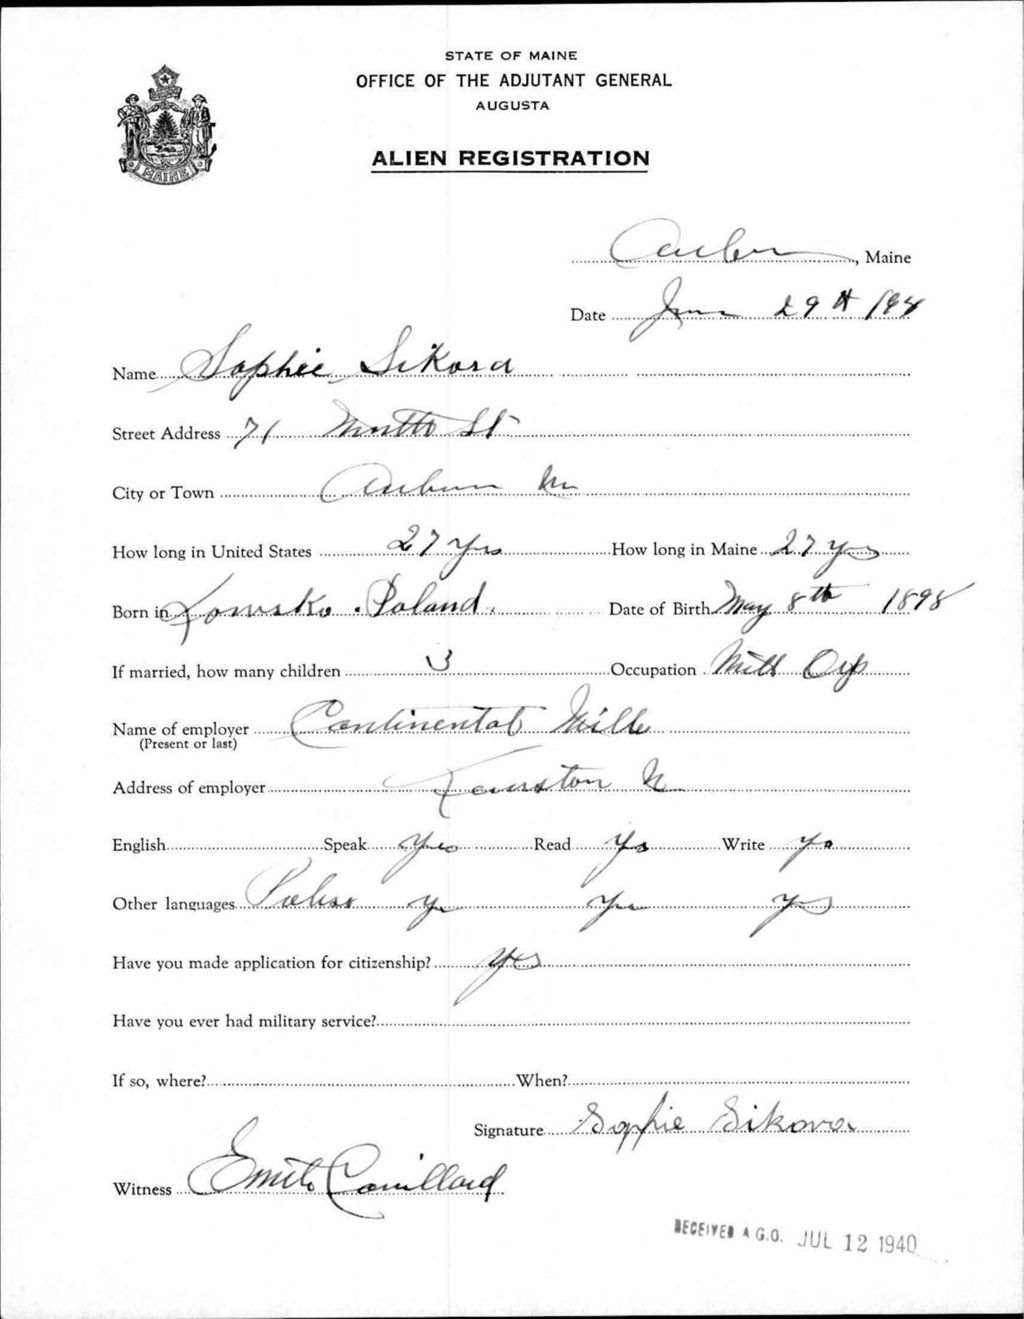 STATE OF MAINE
OFFICE OF THE ADJUTANT GENERAL
AUGUSTA
MAINE
ALIEN REGISTRATION
Auburn, Maine
Date June 29th 194
Name Sophie Sikora
Street Address 71 St
City or Town Auburn Me
How long in United States 27 Yrs How long in Maine 27 yrs
Born in Poland. Date of Birth May 8th 1898
If married, how many children 3 Occupation Mill Op
Name of employer Continental Mills
(Present or last)
Address of employer Lewiston Me
English Speak Yes Read Yes Write Yes
Other languages Polish yes yes yes
Have you made application for citizenship? Yes
Have you ever had military service?
If so, where? When?
Signature Sophie Sikora
Witness
RECEIVED A.G.O. JUL 12 1940